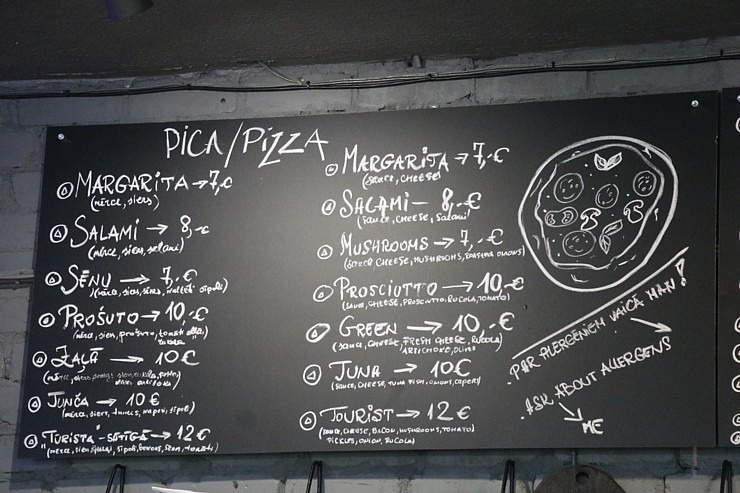 PICA/PIZZA
MARGARITA → 7,-€
(mērce, siers)
SALAMI → 8,-€
(mērce, siers, salami)
SĒŅU → 7,-€
(mērce, siers, sēnes, sīpoli)
PROŠUTO → 10,-€
(mērce, siers, prošuto, tomāti
ZAĻĀ → 10€
JUNČA → 10€
TŪRISTA - SĀTĪGĀ → 12€
MARGARITA → 7,-€
(SAUCE, CHEESE)
SALAMI — 8,-€
(SAUCE, CHEESE, SALAMI)
MUSHROOMS → 7,-€
(SAUCE CHEESE, MUSHROOMS, ONIONS)
PROSCIUTTO → 10,-€
(SAUCE, CHEESE, PROSCIUTTO, RUCOLA, TOMATO)
GREEN → 10,-€
(SAUCE, CHEESE, FRESH CHEESE, RUCOLA)
ARTICHOKE, OLIVES
TUNA → 10€
(SAUCE, CHEESE, TUNA FISH, ONIONS, CAPERS)
TOURIST → 12€
(SAUCE, CHEESE, BACON, MUSHROOMS, TOMATO)
PICKLES, ONION, RUCOLA)
. PAR ALERGĒNIEM VAICĀ MAN!
. ASK ABOUT ALLERGENS
ME